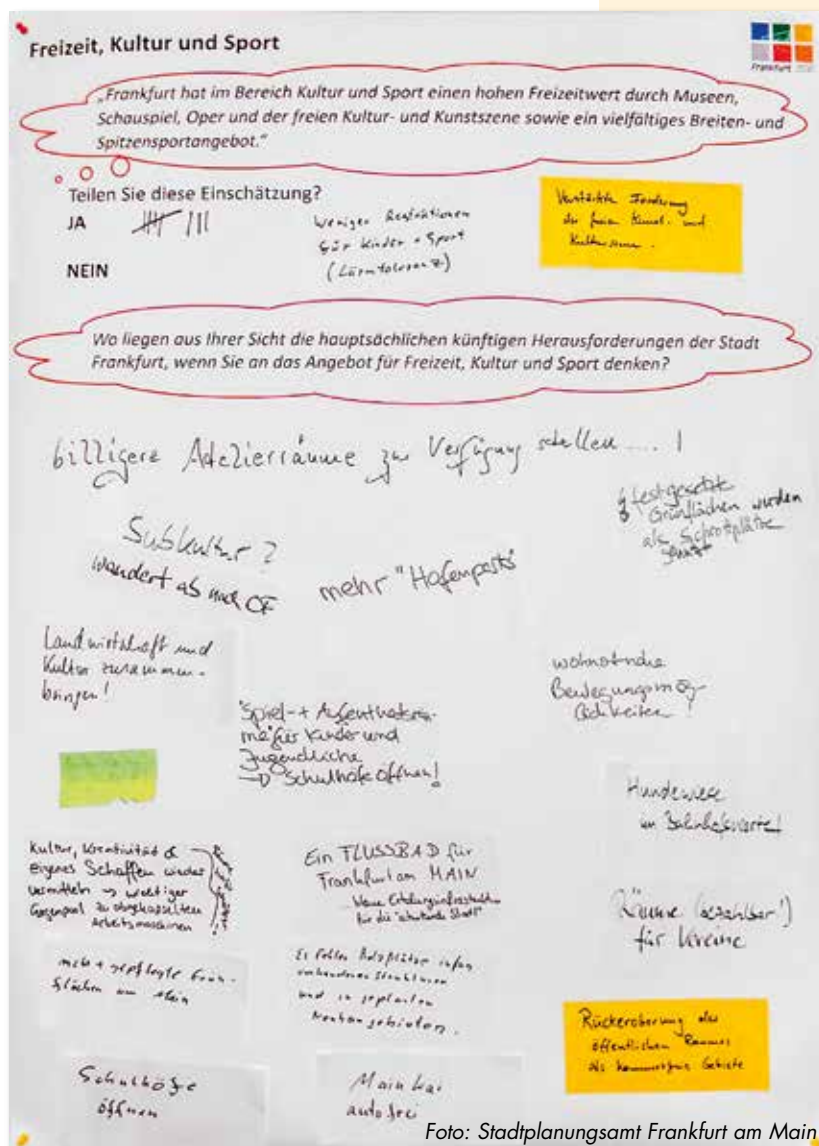 Freizeit, Kultur und Sport
Frankfurt
„Frankfurt hat im Bereich Kultur und Sport einen hohen Freizeitwert durch Museen,
Schauspiel, Oper und der freien Kultur- und Kunstszene sowie ein vielfältiges Breiten- und
Spitzensportangebot.“
Teilen Sie diese Einschätzung?
JA
NEIN
Weniger Restriktionen
für Kinder + Sport
(Lärmtoleranz)
Verstärkte Förderung
der freien Kunst- und
Kulturszene.
Wo liegen aus Ihrer Sicht die hauptsächlichen künftigen Herausforderungen der Stadt
Frankfurt, wenn Sie an das Angebot für Freizeit, Kultur und Sport denken?
billigere Atelierräume zur Verfügung stellen .... !
festgesetzte
Grünflächen werden
als Schrottplätze
Subkultur?
wandert ab nach OF
mehr "Hafenparks"
Landwirtschaft und
Kultur zusammen-
bringen!
wohnortnahe
Bewegungsmög-
lichkeiten!
Spiel- + Aufenthaltsräu-
me für Kinder und
Jugendliche
Schulhöfe öffnen!
Hundewiese
im Bahnhofsviertel
Kultur, Kreativität &
eigenes Schaffen wieder
vermitteln → wichtiger
Gegenpol zu
Arbeitsmaschinen
Ein FLUSSBAD für
Frankfurt am MAIN
Neue Erholungsinfrastruktur
für die
Räume (bezahlbar!)
für Vereine
mehr + gepflegte Grün-
flächen am Main
Es fehlen Bolzplätze in
vorhandenen Strukturen
und in geplanten
Neubaugebieten.
Rückeroberung des
öffentlichen Raumes
als kommerzfreie Gebiete
Schulhöfe
öffnen
Mainkai
autofrei
Foto: Stadtplanungsamt Frankfurt am Main